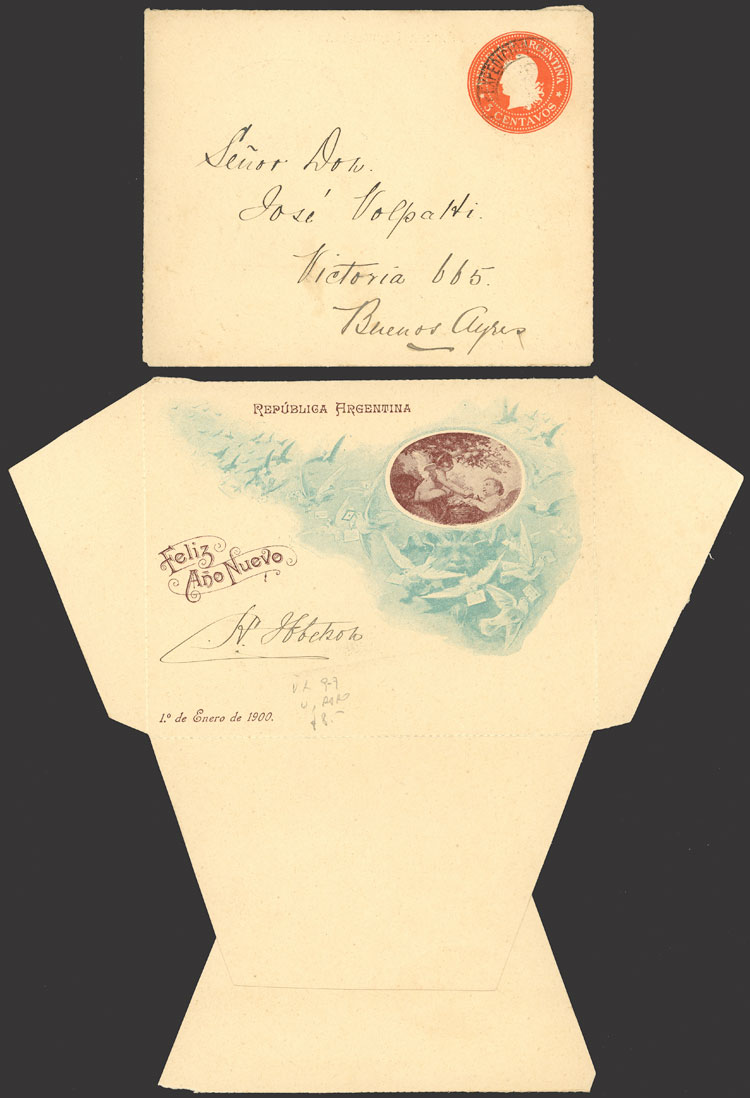 ARGENTINA
5 CENTAVOS
Señor Don.
José Volpatti.
Victoria 665.
Buenos Ayres
REPÚBLICA ARGENTINA
Feliz
Año Nuevo
1.º de Enero de 1900.